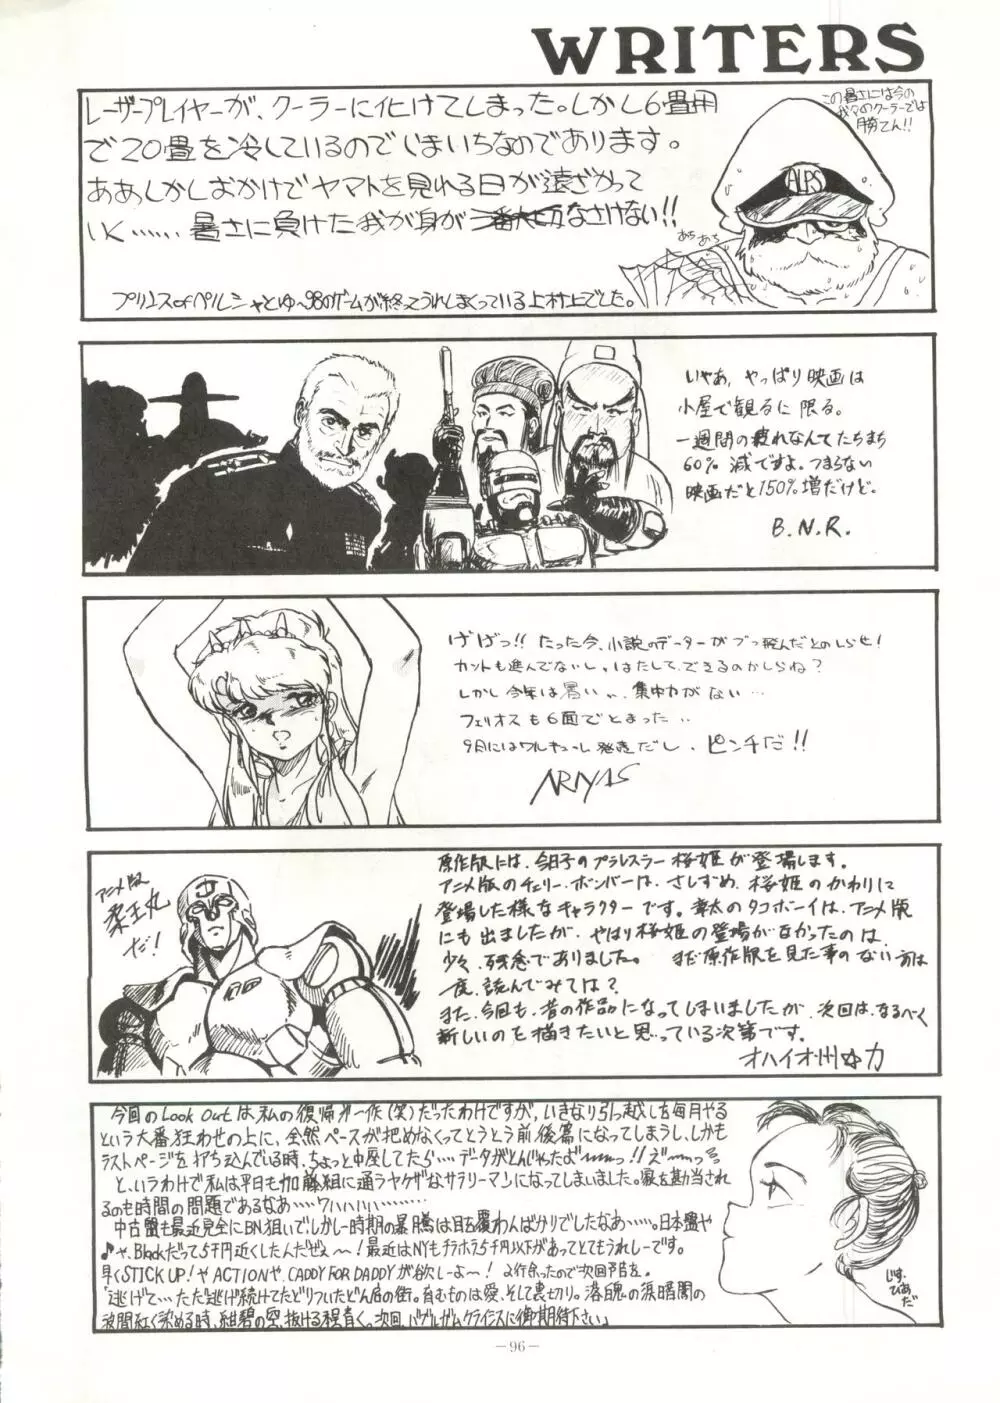 WRITERS
レーザープレイヤーが、クーラーに化けてしまった。しかし6畳用
で20畳を冷しているのでいまいちなのであります。
ああしかしおかげでヤマトを見れる日が遠ざかって
いく……、暑さに負けた我が身がなさけない!!
プリンスofペルシャとゆー98のゲームが終ってうれしまくっている上村上でした。
この暑さには今の
我々のクーラーでは
勝てん!!
ALPS
あちあち
いやあ、やっぱり映画は
小屋で観るに限る。
一週間の疲れなんてたちまち
60%減ですよ。つまらない
映画だと150%増だけど。
B.N.R.
げばっ!! たった今、小説のデーターがブっ飛んだとのしらせ!
カットも進んでないし、はたして、できるのかしらね?
しかし今年は暑い、、集中力がない…
フェリオスも6面でとまった…
9月にはワルキューレ発売だし、ピンチだ!!
ARIYAS
アニメ版
柔王丸
だ!
原作版には、今日子のプラレスラー桜姫が登場します。
アニメ版のチェリー・ボンバーは、さしずめ、桜姫のかわりに
登場した様なキャラクターです。韋太のタコボーイは、アニメ版
にも出ましたが、やはり桜姫の登場がなかったのは、
少々、残念でありました。 まだ原作版を見た事のない方は
一度、読んでみては?
また、今回も、昔の作品になってしまいましたが、次回は、なるべく
新しいのを描きたいと思っている次第です。
オハイオ州☆力
今回のLook Outは私の復帰第一作(笑)だったわけですが、いきなり引っ越しを毎月やる
という大番狂わせの上に、全然ペースが把めなくってとうとう前後篇になってしまうし、しかも
ラストページを打ち込んでいる時、ちょっと中座してたら……データがとんじゃったよ〰っ!!え〰っっ
と、いうわけで私は平日も加藤組に通うヤクザなサラリーマンになってしまいました。家を勘当され
るのも時間の問題であるなあ……ワハハハハ…………
中古盤も最近完全にBN狙いで、しかし一時期の暴騰は目を覆わんばかりでしたなあ……。日本盤や
♪ャ、Blackだって5千円近くしたんだぜぇ〜! 最近はNYもチラホラ5千円以下があってとてもうれしーです。
早くSTICK UP!やACTIONや、CADDY FOR DADDYが欲しーよ〜! 2行余ったので次回予告を。
「逃げて…ただ逃げ続けてたどりついたどん底の街。育むものは愛、そして裏切り。落魄の涙暗闇の
波間紅く染める時、紺碧の空、抜ける程青く。次回、バブルガムクライシスに御期待下さい」
じす・
ひあ
だ
—96—